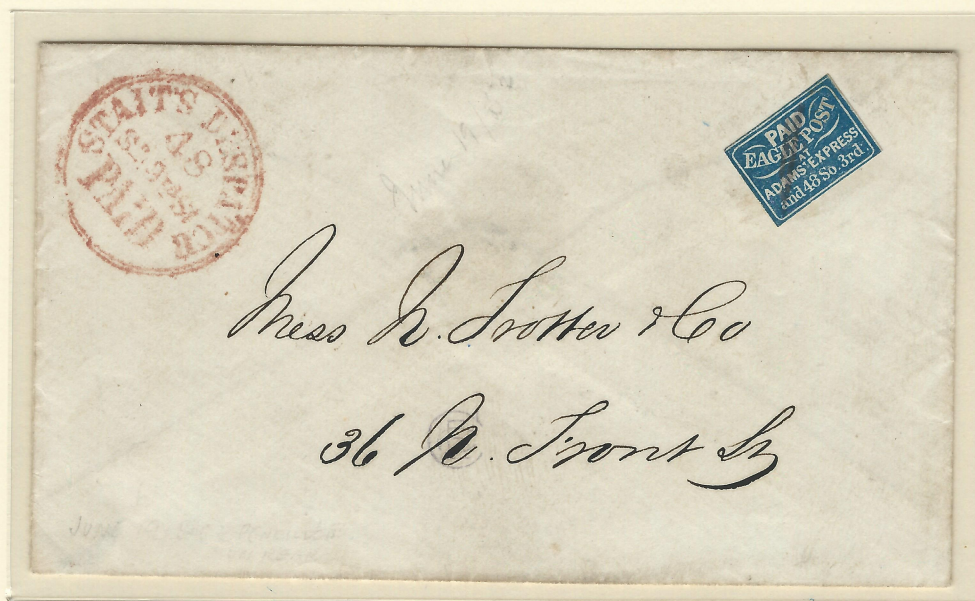 STAIT'S DESPATCH
48
So. 3rd St
PAID
PAID
EAGLE POST
AT
ADAMS' EXPRESS
and 48 So. 3rd:
June 19
Mess N. Trotter & Co
36 N. Front St
JUNE 19